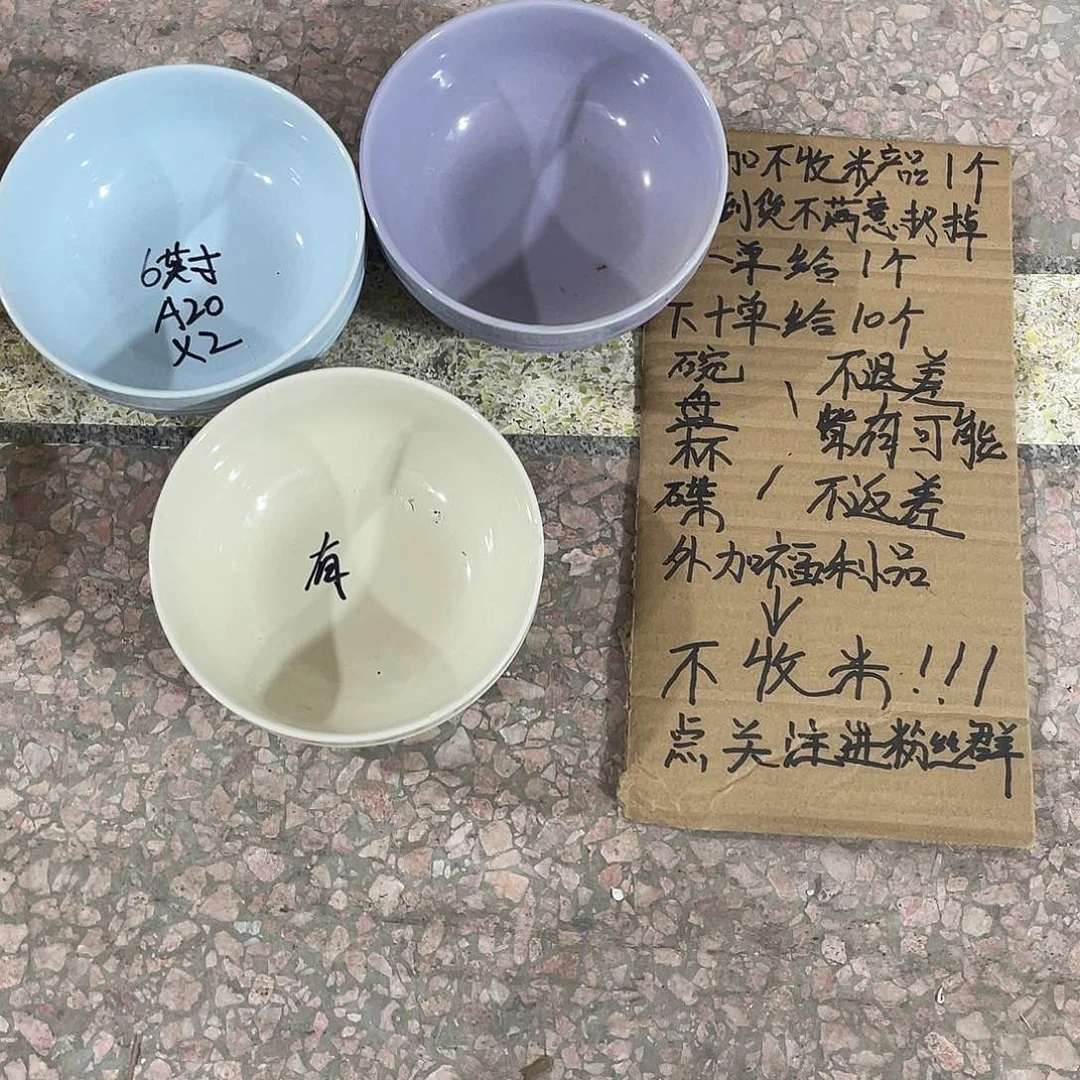 6英寸
A20
X2
有
加不收米产品1个
到货不满意扔掉
一单给1个
下十单给10个
碗 不退差
盘 幣有可能
杯
碟 不返差
外加福利品
↓
不收米!!!
点关注进粉丝群